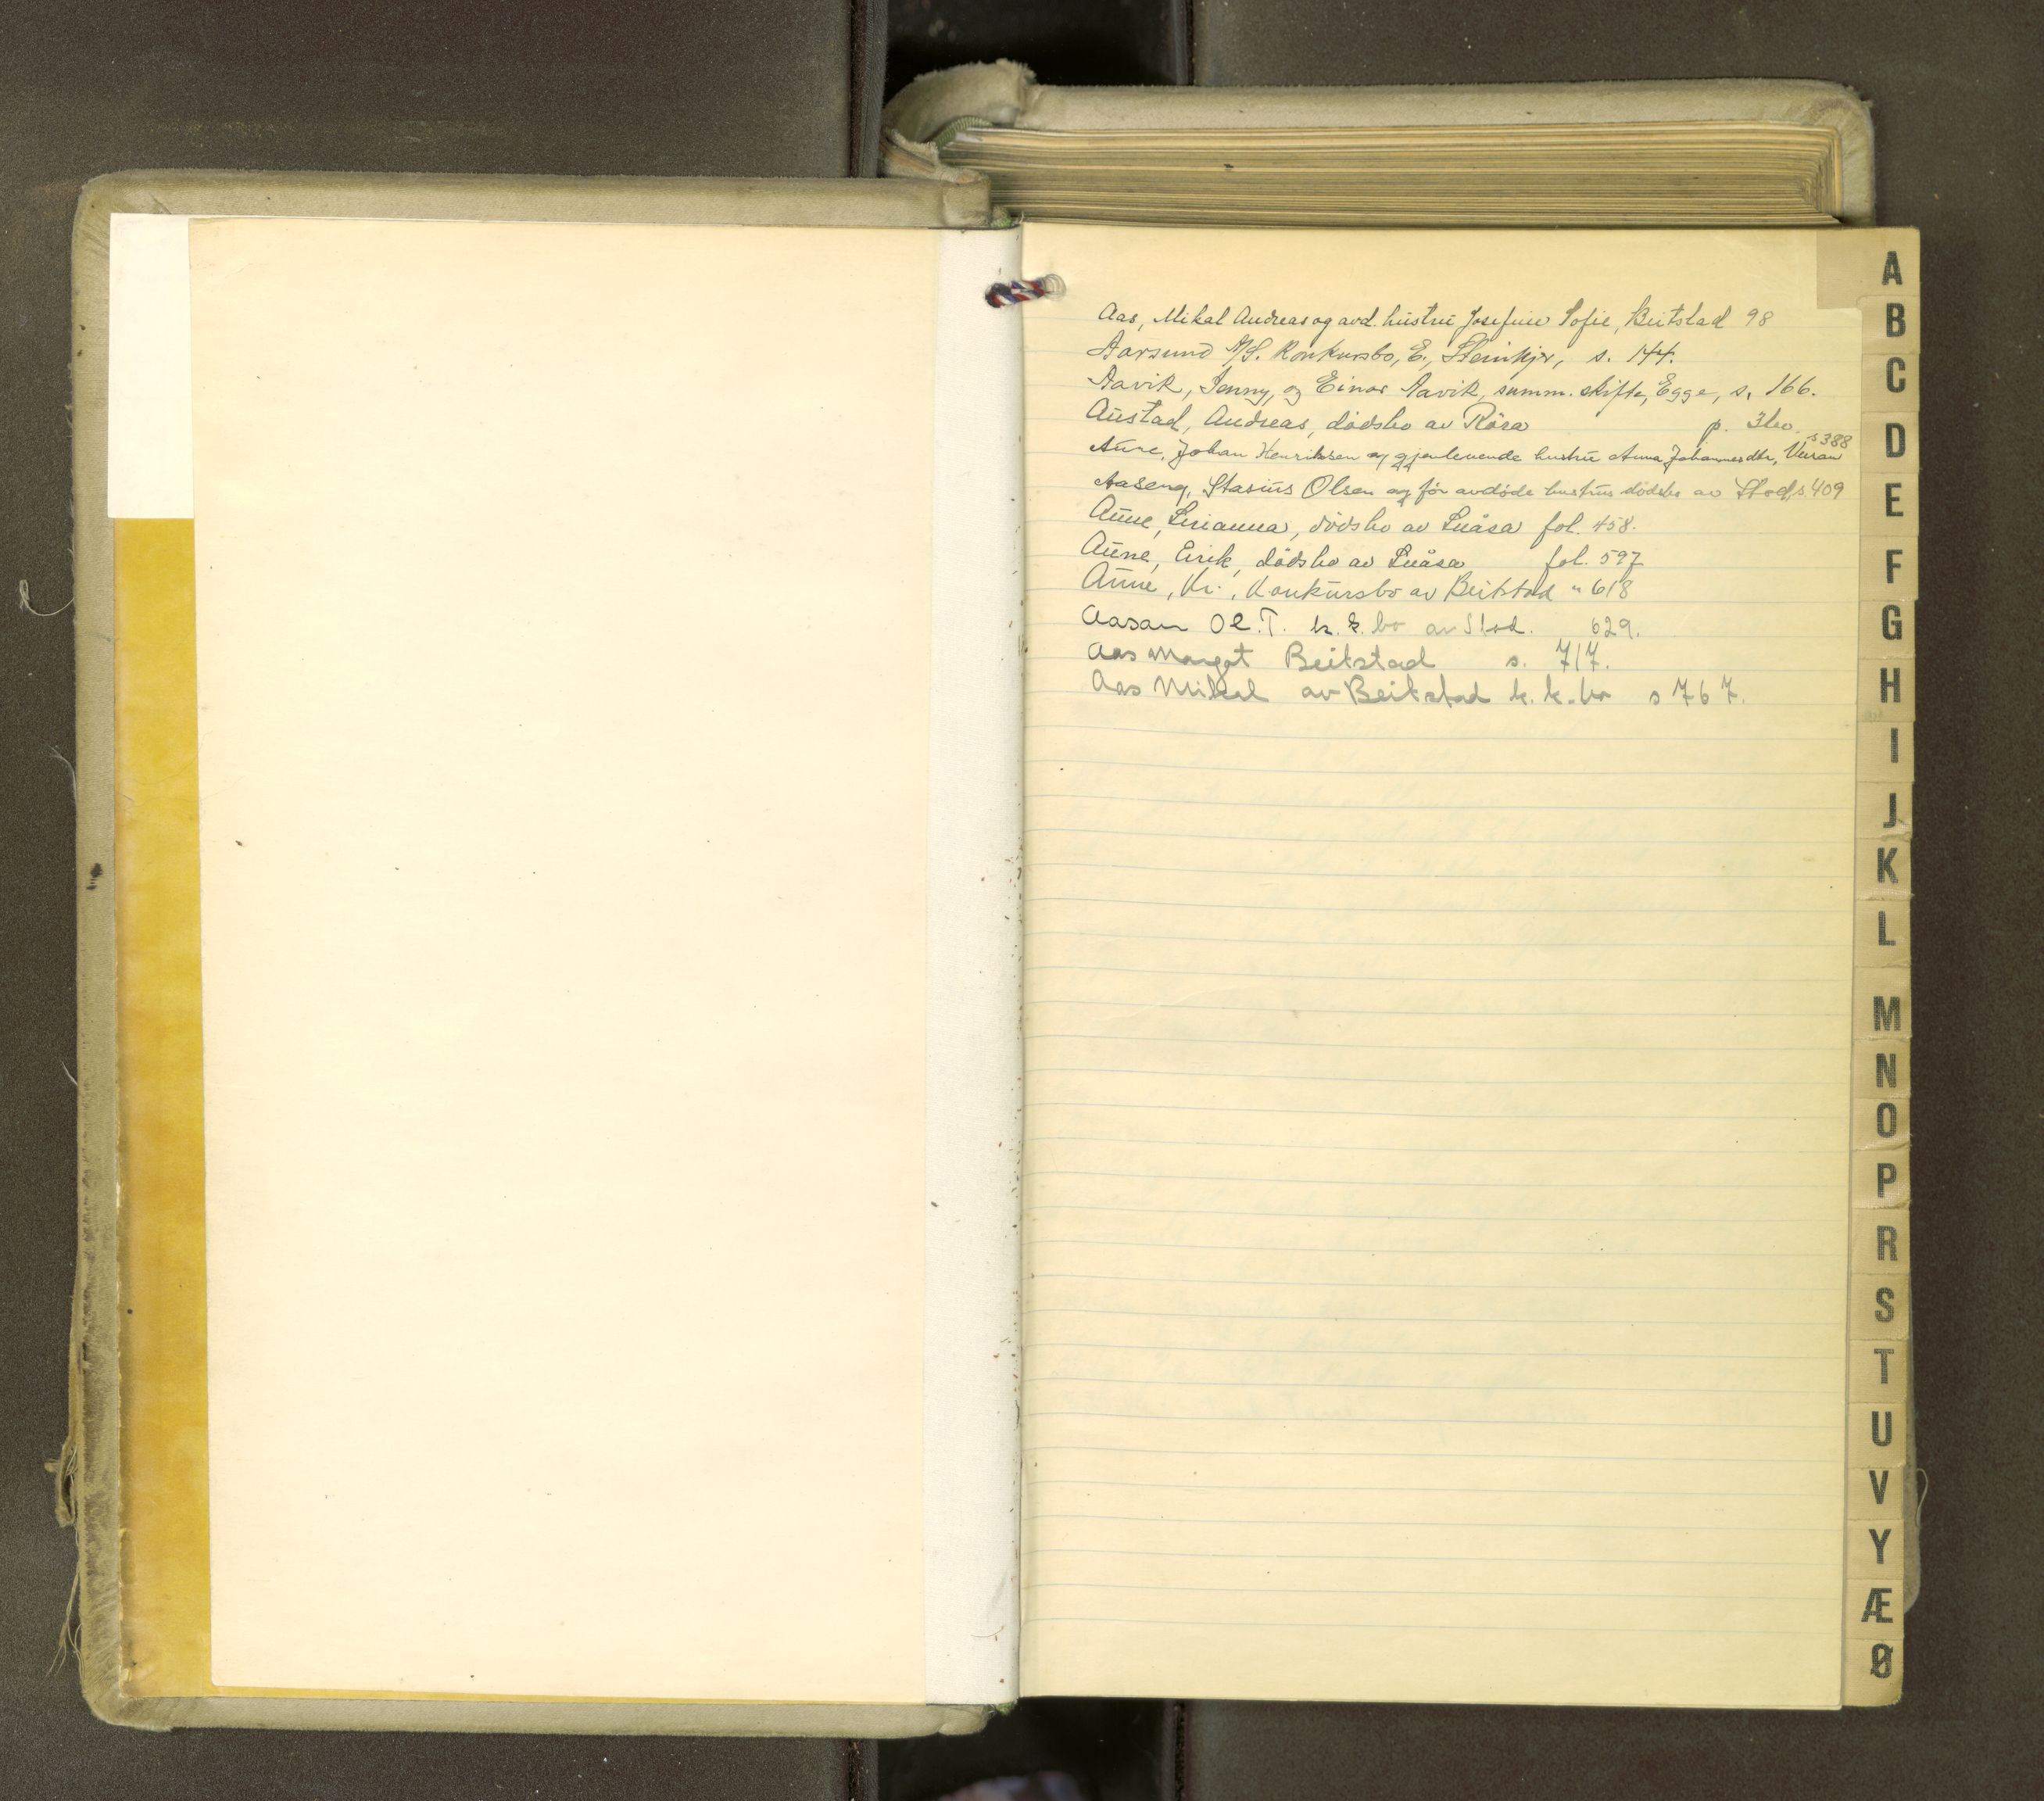 Aas, Mikal Andreas og avd. hustru Josefine Sofie, Beitstad 98
Aarsund A/S. Konkursbo, E., Steinkjer, s. 144.
Aavik, Jenny, og Einar Aavik, summ. skifte, Egge, s. 166.
Austad, Andreas, dødsbo av Röra p. 360.
Aune, Johan Henriksen og gjenlevende hustru Anna Johannesdtr, Verran s 388
Aaseng, Stasius Olsen og før avdøde hustrus dödsbo av Stod, s 409
Aune, dödsbo av Snåsa fol. 458.
Aune, Eirik, dödsbo av Snåsa fol. 597
Aune, Kr., Konkursbo av Beitstad " 618
Aasan Ol. T. k. k. bo av Stod. 629.
Aas Margot Beitstad s. 717.
Aas Mikal av Beitstad k. k. bo s 767.
A
B
C
D
E
F
G
H
I
J
K
L
M
N
O
P
R
S
T
U
V
Y
Æ
Ø